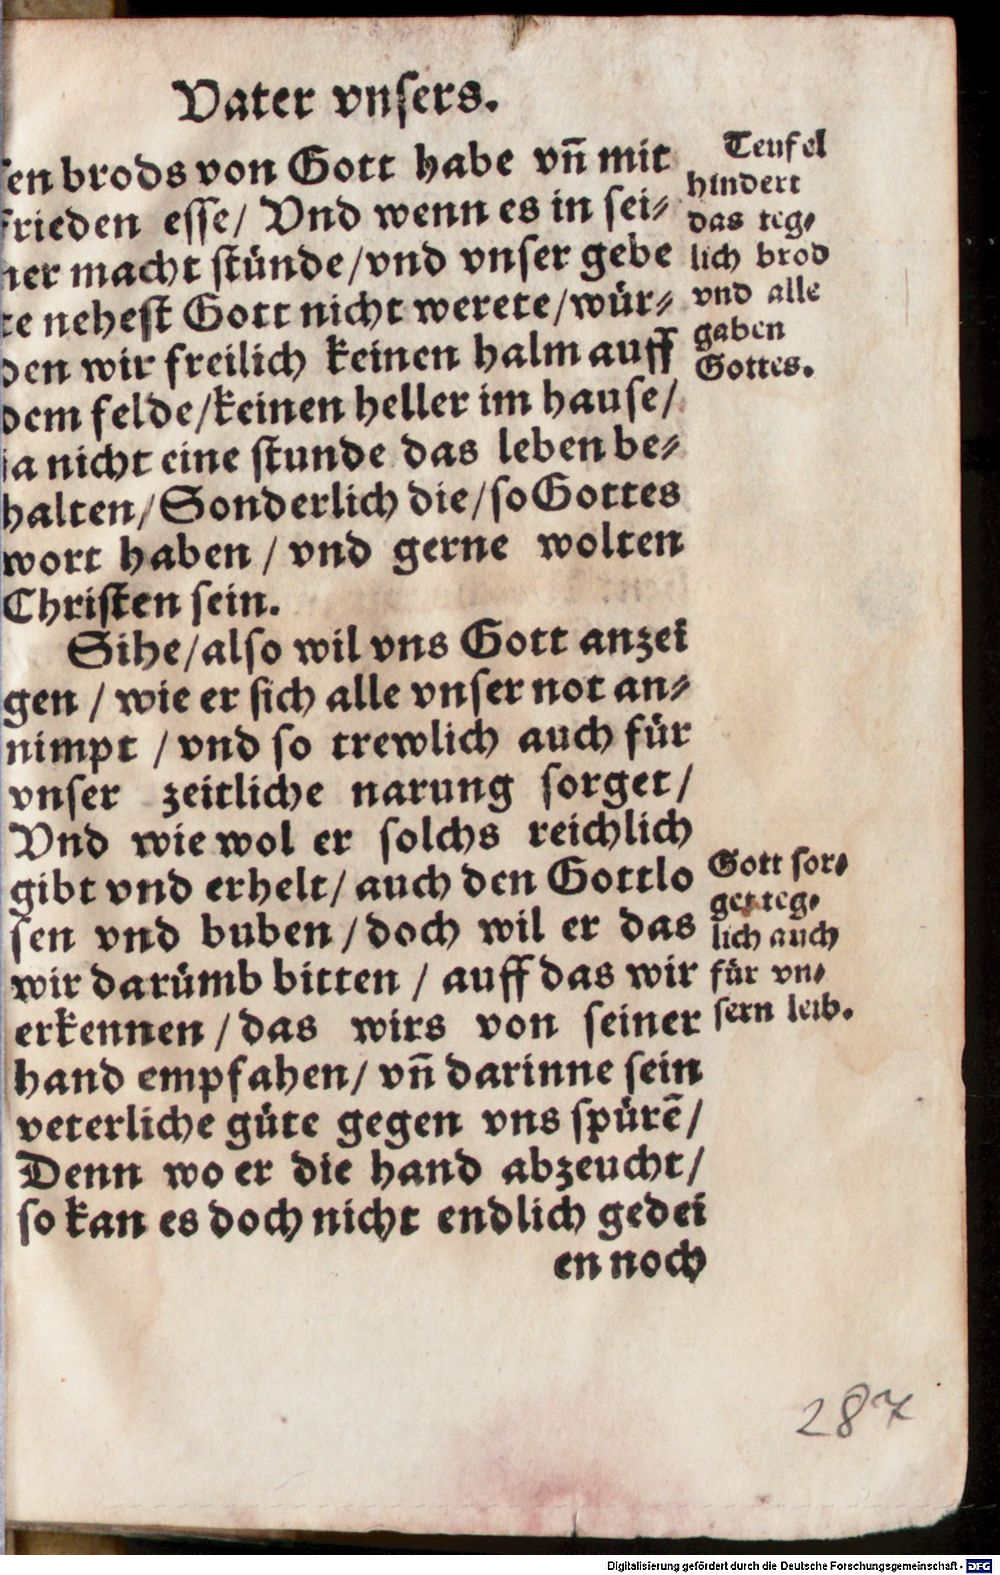 Vater vnsers.
sen brods von Gott habe vn̄ mit
frieden esse/ Vnd wenn es in sei⸗
ner macht stünde/vnd vnser gebe
te nehest Gott nicht werete/wür⸗
den wir freilich keinen halm auff
dem felde/keinen heller im hause/
ia nicht eine stunde das leben be⸗
halten/Sonderlich die/so Gottes
wort haben/vnd gerne wolten
Christen sein.
Sihe/also wil vns Gott anzei
gen/wie er sich alle vnser not an⸗
nimpt/vnd so trewlich auch für
vnser zeitliche narung sorget/
Vnd wie wol er solchs reichlich
gibt vnd erhelt/auch den Gottlo
sen vnd buben/doch wil er das
wir darümb bitten/auff das wir
erkennen/das wirs von seiner
hand empfahen/vn̄ darinne sein
veterliche güte gegen vns spürē/
Denn wo er die hand abzeucht/
so kan es doch nicht endlich gedei
en noch
Teufel
hindert
das teg⸗
lich brod
vnd alle
gaben
Gottes.
Gott sor⸗
get teg⸗
lich auch
für vn⸗
sern leib.
287
Digitalisierung gefördert durch die Deutsche Forschungsgemeinschaft - DFG